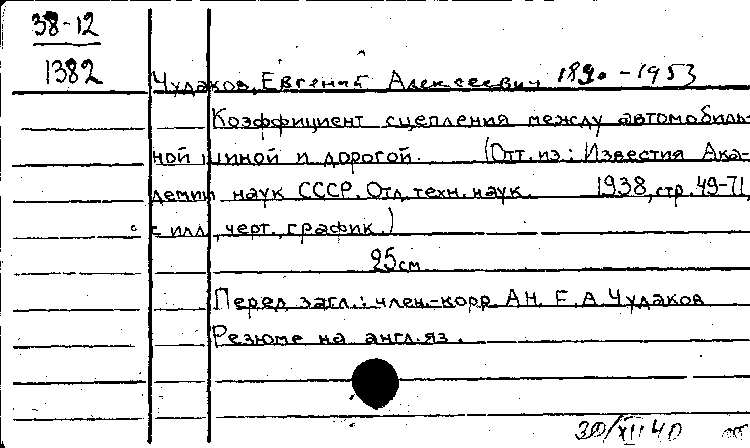 38-12
1382
Чудаков, Евгений Алексеевич 1890-1953
Коэффициент сцепления между автомобиль-
ной шиной и дорогой. (Отт. из: Известия Ака-
демии наук СССР. Отд. техн. наук. 1938, стр. 49-71,
с илл., черт., график.)
25см
Перед загл.: член.-корр. АН. Е. А. Чудаков
Резюме на англ. яз.
30/XII 40